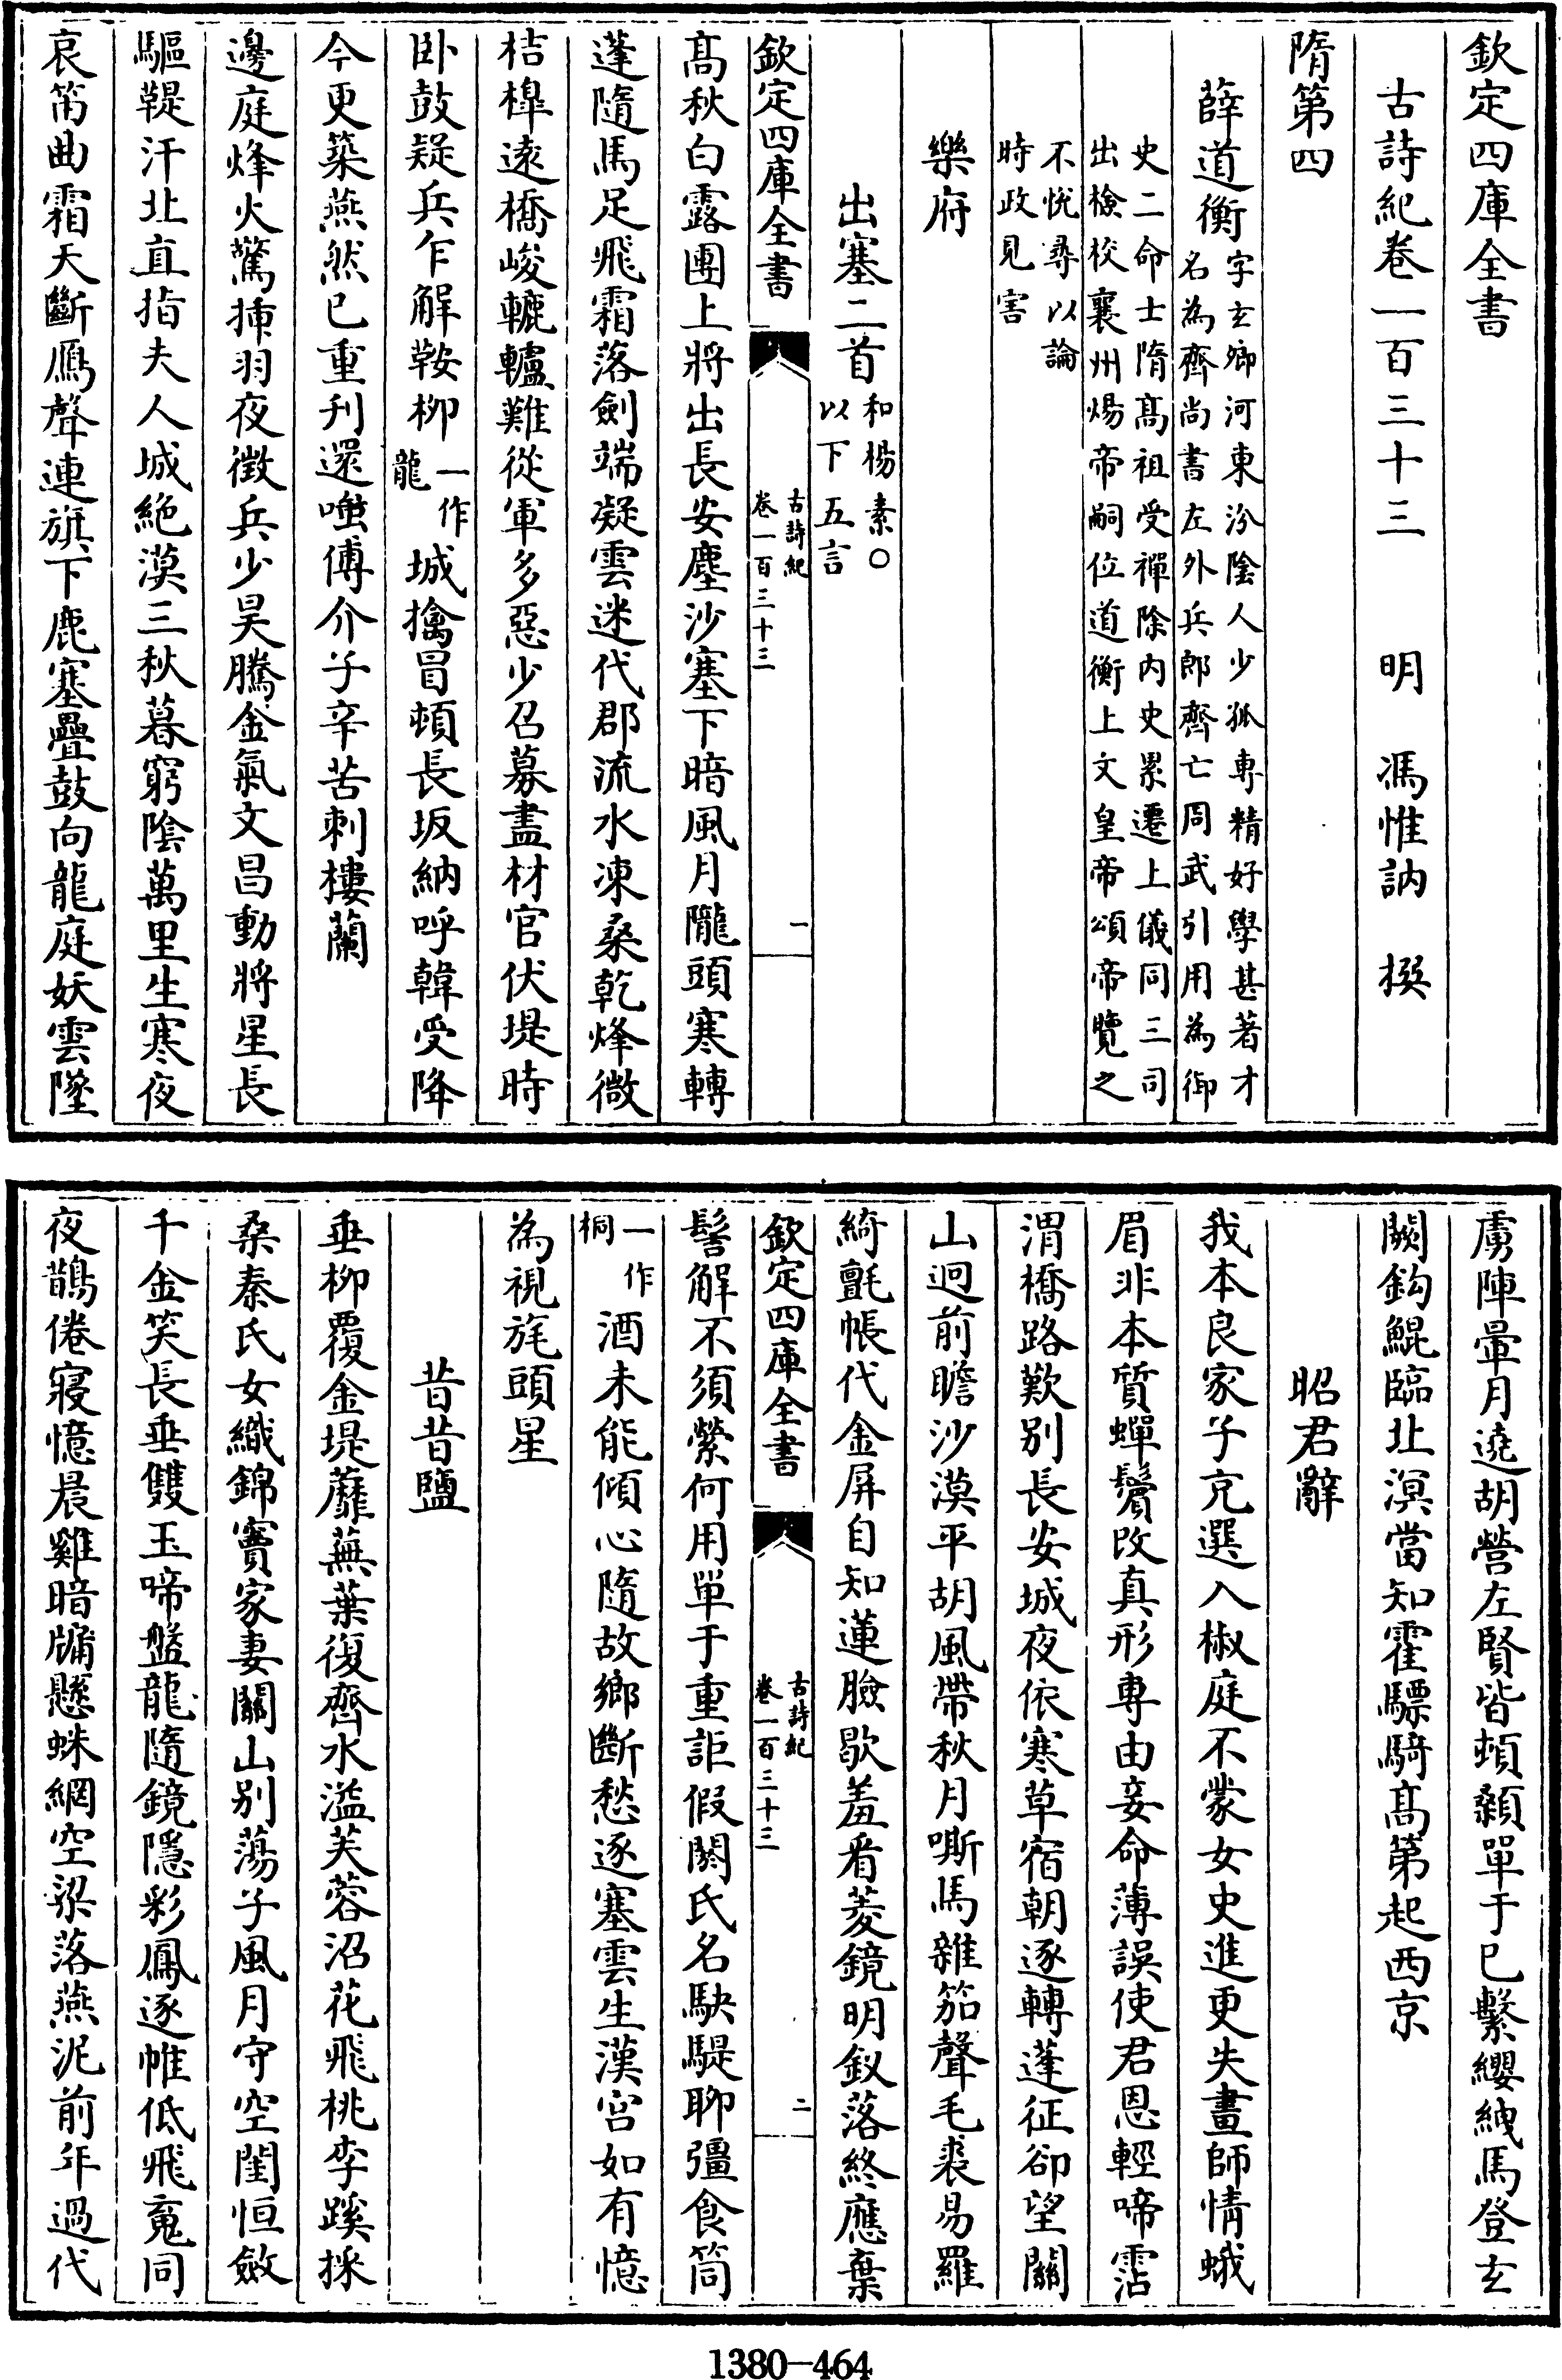 欽定四庫全書
古詩紀卷一百三十三 明 馮惟訥 撰
隋第四
薛道衡字玄卿河東汾陰人少孤專精好學甚著才
名為齊尚書左外兵郎齊亡周武引用為御
史二命士隋髙祖受禪除内史累遷上儀同三司
出檢校襄州煬帝嗣位道衡上文皇帝頌帝覽之
不悦尋以論
時政見害
樂府
出塞二首和楊素○
以下五言
欽定四庫全書
古詩紀
卷一百三十三
一
髙秋白露團上將出長安塵沙塞下暗風月隴頭寒轉
蓬隨馬足飛霜落劍端凝雲迷代郡流水凍桑乾烽微
桔橰遠橋峻轆轤難從軍多惡少召募盡材官伏堤時
卧鼓疑兵乍解鞍柳一作
龍城擒冒頓長坂納呼韓受降
今更築燕然已重刋還嗤傅介子辛苦刺樓蘭
邊庭烽火驚揷羽夜徴兵少昊騰金氣文昌動將星長
驅鞮汗北直指夫人城絶漠三秋暮窮陰萬里生寒夜
哀笳曲霜天斷鴈聲連旗下鹿塞疊鼓向龍庭妖雲墜
虜陣暈月遶胡營左賢皆頓顙單于已繫纓絏馬登玄
闕鈎鯤臨北溟當知霍驃騎髙第起西京
昭君辭
我本良家子充選入椒庭不蒙女史進更失畫師情蛾
眉非本質蟬鬢改真形專由妾命薄誤使君恩輕啼霑
渭橋路歎别長安城夜依寒草宿朝逐轉蓬征卻望關
山迥前瞻沙漠平胡風帶秋月嘶馬雜笳聲毛裘易羅
綺氈帳代金屏自知蓮臉歇羞看菱鏡明釵落終應棄
欽定四庫全書
古詩紀
卷一百三十三
二
髻解不須縈何用單于重詎假閼氏名駃騠聊彊食筒
一作
桐酒未能傾心隨故鄉斷愁逐塞雲生漢宫如有憶
為視旄頭星
昔昔鹽
垂柳覆金堤蘼蕪葉復齊水溢芙蓉沼花飛桃李蹊採
桑秦氏女織錦竇家妻關山别蕩子風月守空閨恒斂
千金笑長垂雙玉啼盤龍隨鏡隱彩鳳逐帷低飛䰟同
夜鵲倦寢憶晨雞暗牖懸蛛網空梁落燕泥前年過代
1380-464